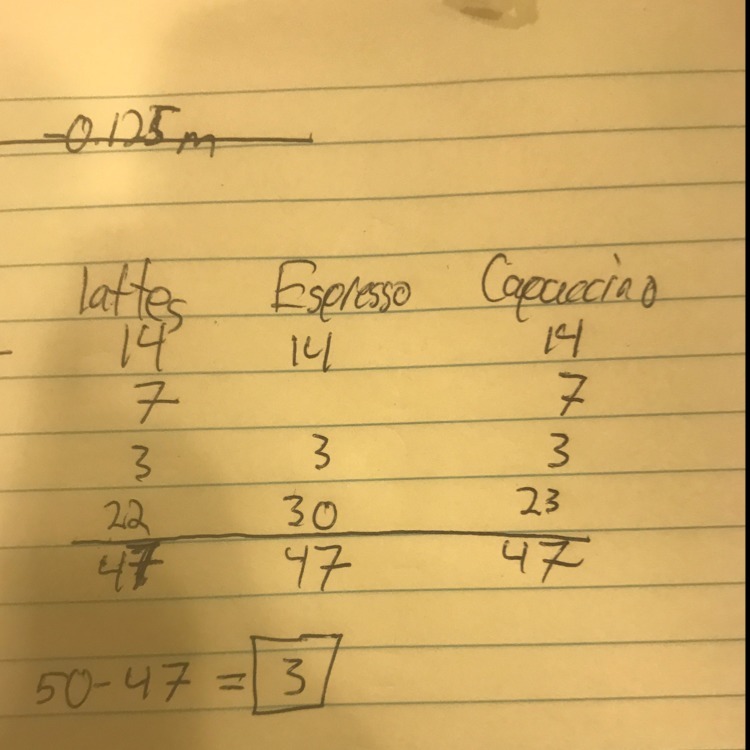 -0.125m
lattes Espresso Capuccino
14 14 14
7 7
3 3 3
22 30 23
47 47 47
50-47 = 3